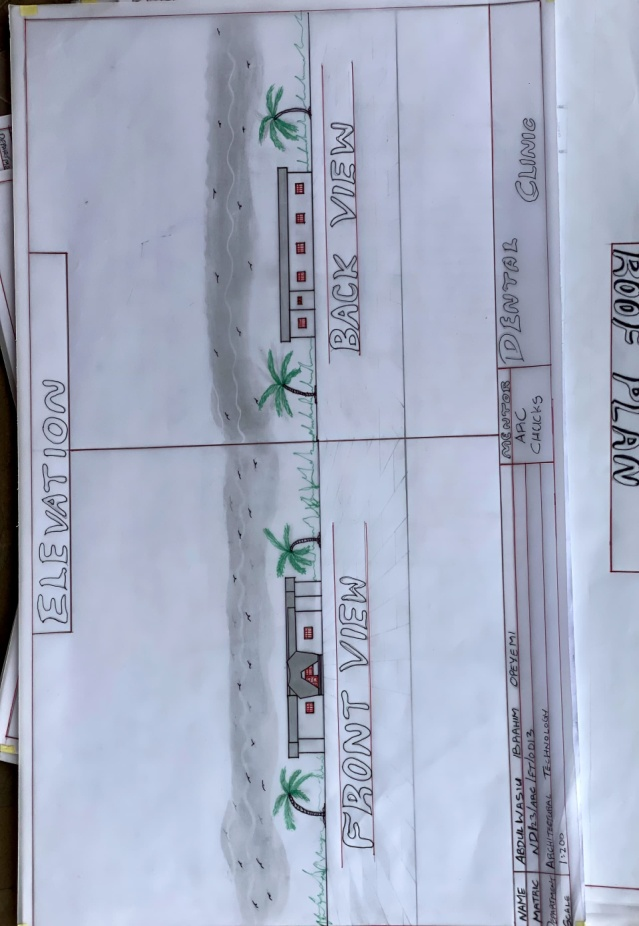 ELEVATION
FRONT VIEW
BACK VIEW
NAME ABDULWASIU IBRAHIM OPEYEMI
MATRIC ND/23/ARC/FT/0013
DEPARTMENT ARCHITECTURAL TECHNOLOGY
SCALE 1:200
MENTOR
ARC
CHUCKS
DENTAL CLINIC
ROOF PLAN